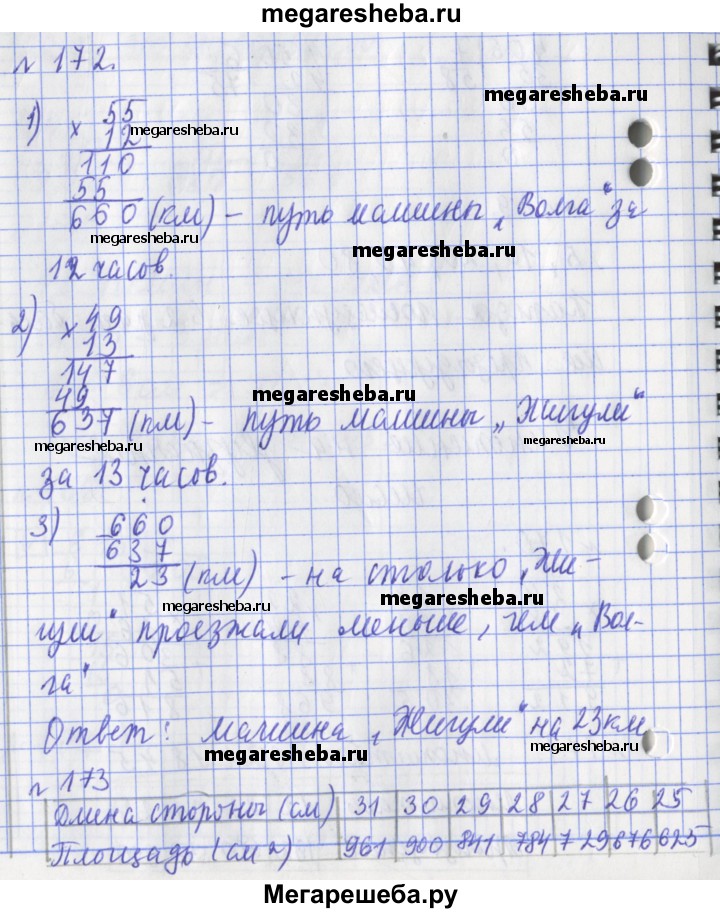 megaresheba.ru
№ 172.
megaresheba.ru
1) × 55
12 megaresheba.ru
110
55
660 (км) - путь машины „Волга“ за
megaresheba.ru
megaresheba.ru
12 часов.
2) × 49
13
147
49
megaresheba.ru
637 (км) - путь машины „Жигули“
megaresheba.ru
megaresheba.ru
за 13 часов.
3) 660
637
23 (км) - на столько „Жи-
megaresheba.ru
megaresheba.ru
гули“ проезжали меньше, чем „Вол-
га“
Ответ: машина „Жигули“ на 23 км
megaresheba.ru
megaresheba.ru
№ 173
Длина стороны (см) 31 30 29 28 27 26 25
Площадь (см²) 961 900 841 784 729 676 625
Мегарешеба.ру